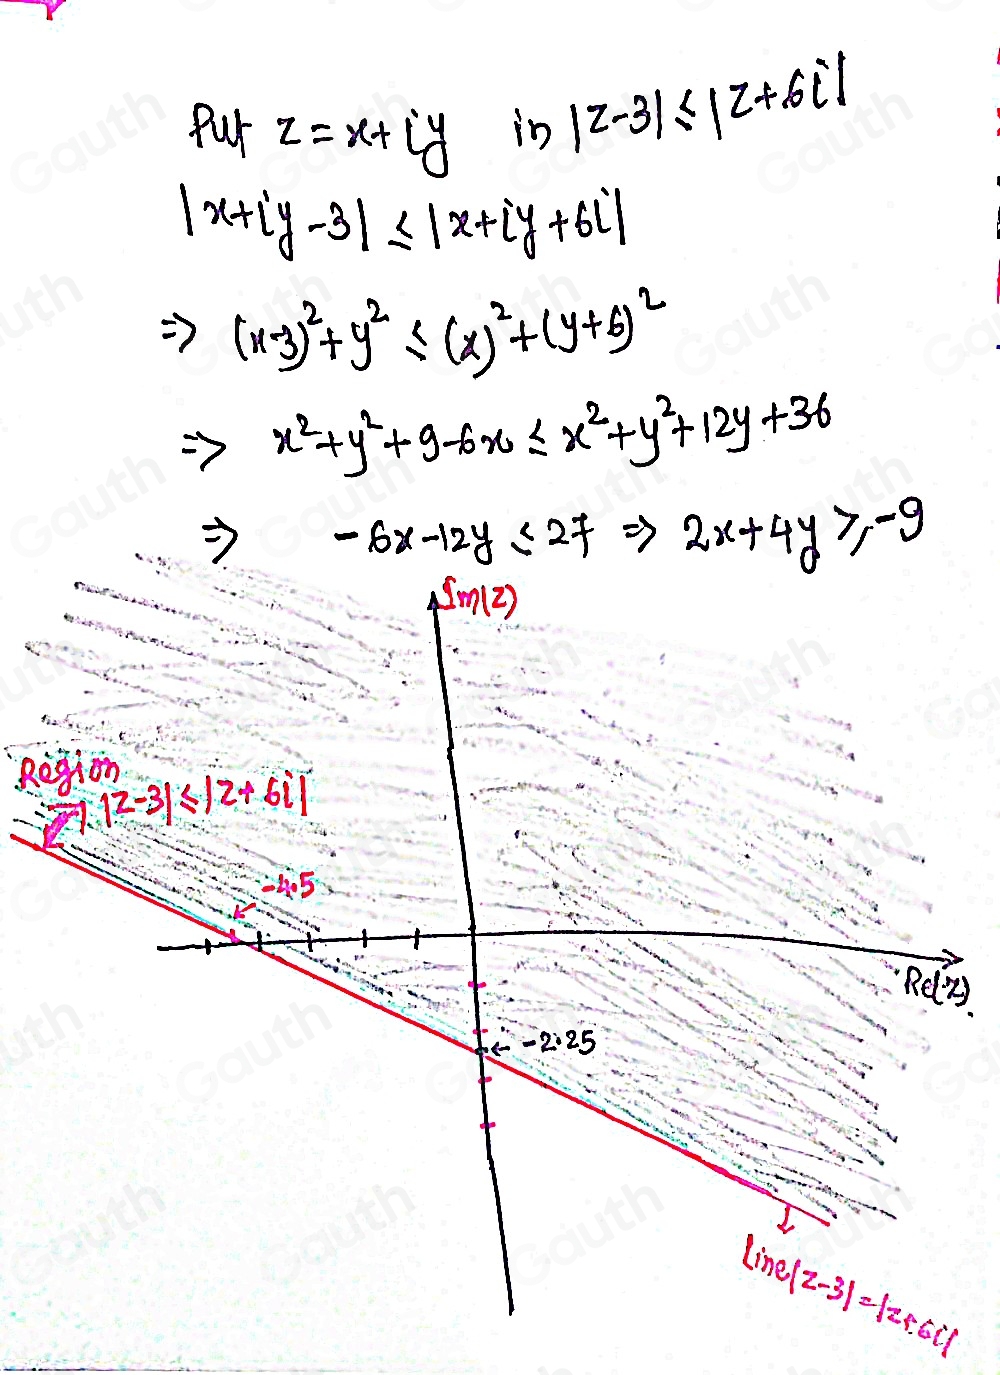 Put z = x + iy in |z-3| ≤ |z+6i|
|x+iy-3| ≤ |x+iy+6i|
⇒ (x-3)² + y² ≤ (x)² + (y+6)²
⇒ x² + y² + 9 - 6x ≤ x² + y² + 12y + 36
⇒ -6x - 12y ≤ 27 ⇒ 2x + 4y ≥ -9
Im(z)
Region
|z-3| ≤ |z+6i|
-4.5
Re(z)
-2.25
Line |z-3| = |z+6i|
Gauth